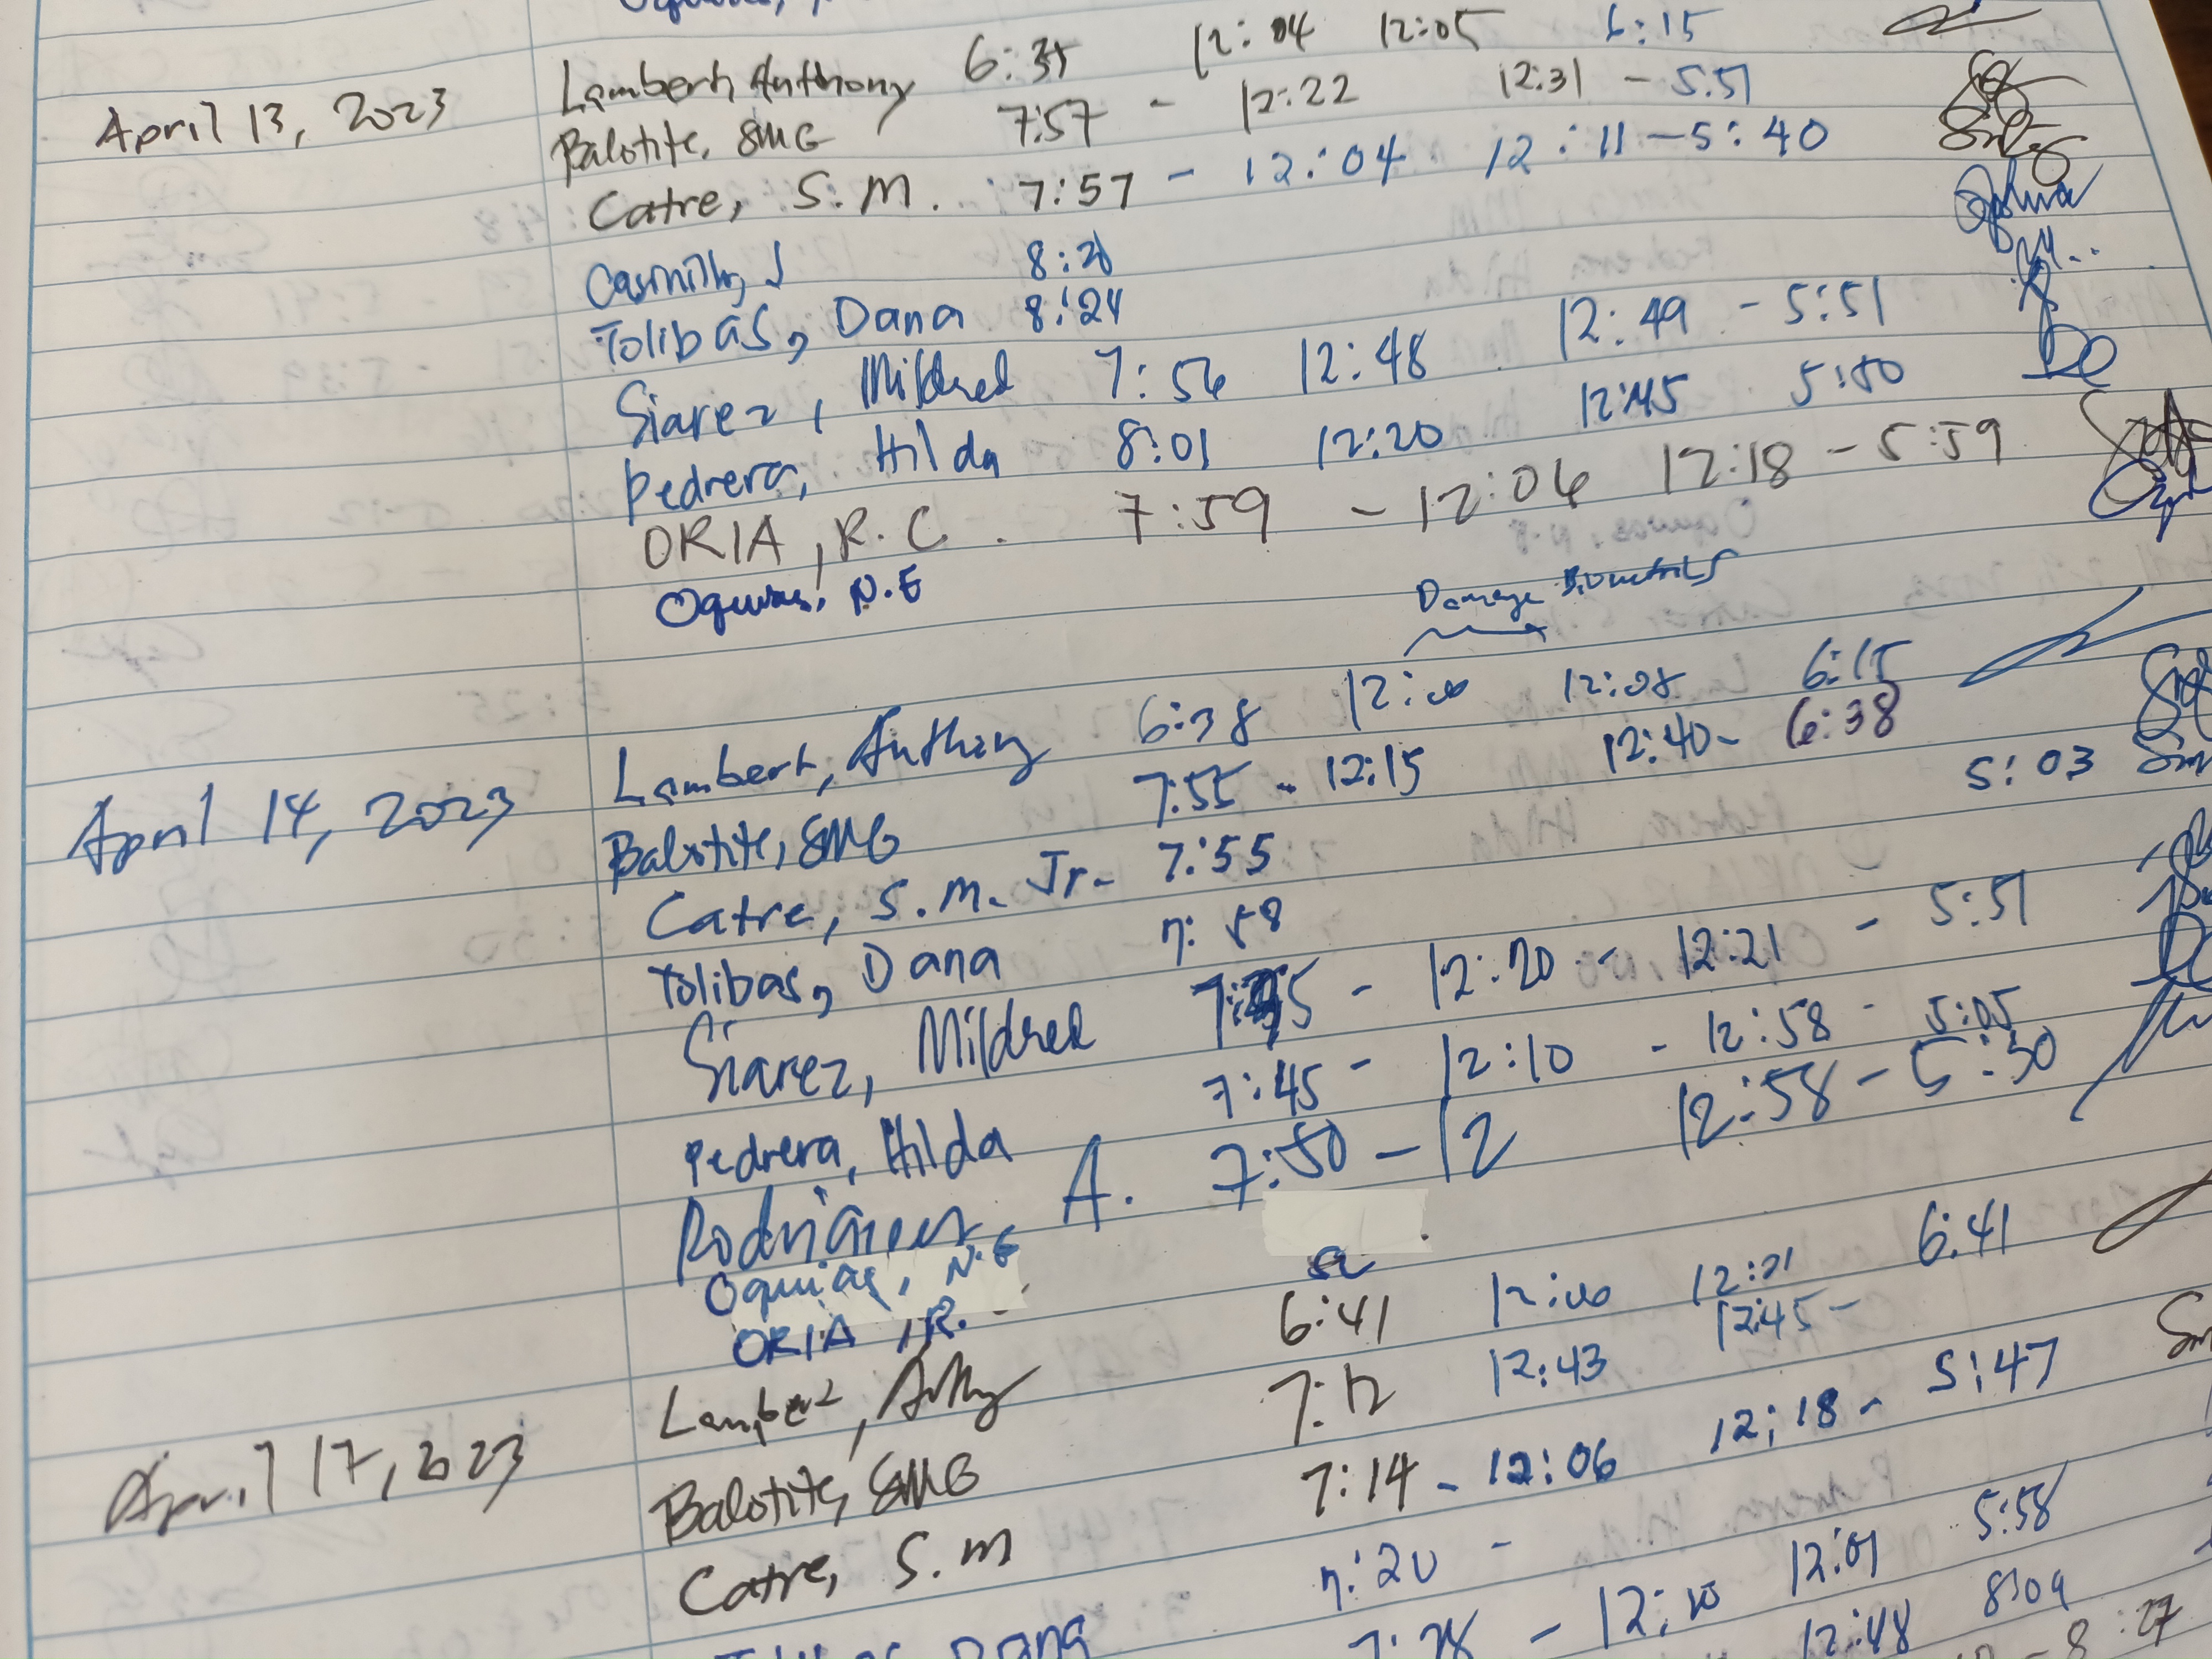 Lambert, Anthony 6:35 12:04 12:05 6:15
April 13, 2023 Balotite, SMG 7:57 - 12:22 12:31 - 5:51
Catre, S.M. 7:57 - 12:04 12:11 - 5:40
J 8:21
Tolibas, Dana 8:24
Siarez, Mildred 7:56 12:48 12:49 - 5:51
Pedrera, Hilda 8:01 12:20 12:45 5:50
ORIA, R.C. 7:59 - 12:06 12:18 - 5:59
N.E
Damage Biometrics
April 14, 2023 Lambert, Anthony 6:38 12:00 12:08 6:15
Balotite, SMG 7:55 - 12:15 12:40 - 6:38
Catre, S.M. Jr. 7:55 5:03
Tolibas, Dana 7:58
Siarez, Mildred - 12:20 - 12:21 - 5:51
Pedrera, Hilda 7:45 - 12:10 - 12:58 - 5:05
Rodriguez, A. 7:50 - 12 12:58 - 5:30
Oquias, N.E
ORIA, R.
April 17, 2023 Lambert, 6:41 12:00 12:01 6:41
Balotite, SMG 7:12 12:43 12:45 -
Catre, S.M 7:14 - 12:06 12:18 - 5:47
Tolibas, Dana 7:20 -
7:28 - 12:01 5:58
12:48 8:09
- 8:27